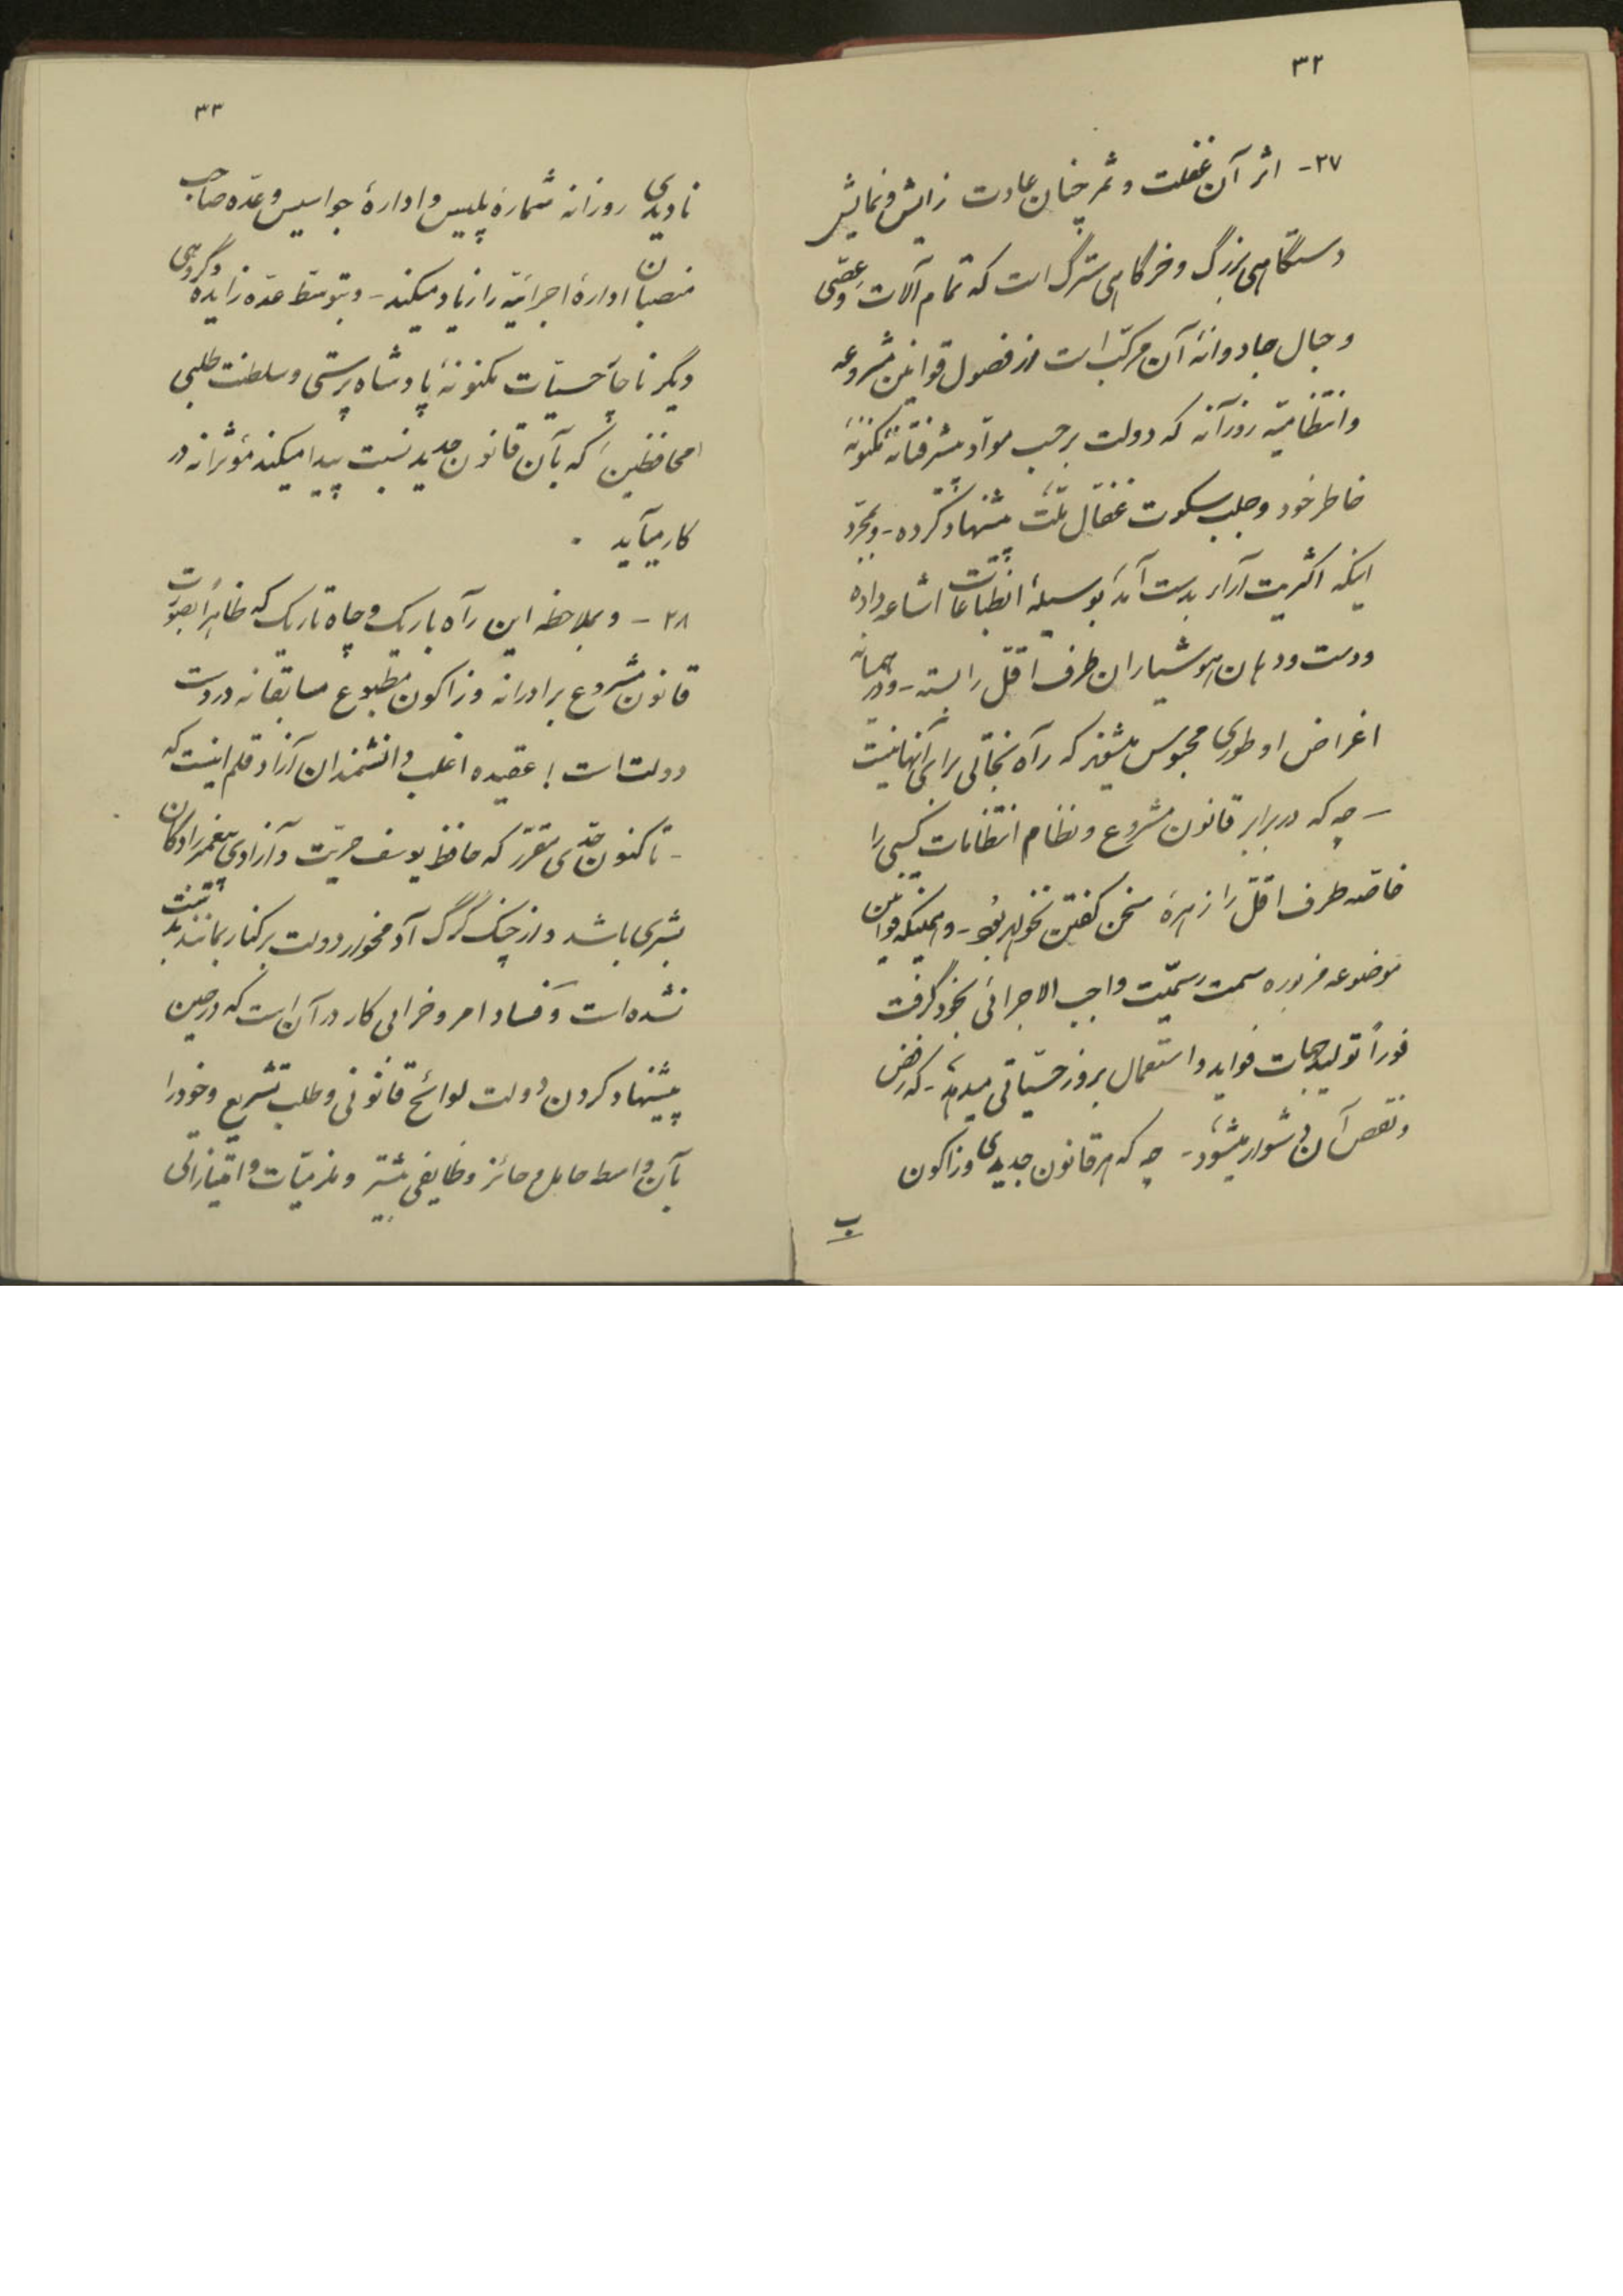 ۳۲
۲۷- اثر آن غفلت و ثمر چنان عادت زایش و نمایش
دستگاهی بزرگ و خرگاهی سترگ است که تمام آلات و عصّی
و حبال جادوانهٔ آن مرکّب است از فصول قوانین مشروعه
و انتظامیّه روزآنه که دولت برحسب موادّ پیشرفتانهٔ مکنونهٔ
خاطر خود و جلب سکوت غفّال ملّت پیشنهاد کرده - و بمجرّد
اینکه اکثریت آراء بدست آمد بوسیلهٔ انطباعات اشاعه داده
و دست و دهان هوشیاران طرف اقلّ را بسته - و در
اغراض او طوری محبوس میشوند که رآه نجاتی برای آنها نیست
- چه که در برابر قانون مشروع و نظام انتظامات کسی را
خاصّه طرف اقلّ را زهرهٔ سخن گفتن نخواهد بود - و همینکه قوانین
موضوعه مزبوره سمت رسمیّت واجب الاجرائی بخود گرفت
فوراً تولید جهات فواید و استعمال بروز حسّیاتی میدهد - که رفض
و نقص آن دشوار میشود - چه که هر قانون جدیدی و زاکون
ب
۳۳
نادیدی روزانه شمارهٔ پلیس و ادارهٔ جواسیس و عدّه صاحب
منصبان ادارهٔ اجرائیّه را زیاد میکند - و بتوسّط عدّه زایده و گروهی
دیگر ناجا حسیّات مکنونهٔ پادشاه پرستی و سلطنت طلبی
محافظین که بآن قانون جدید نسبت پیدا میکند مؤثرانه در
کار میآید .
۲۸ - و بملاحظه این رآه باریک و چاه تاریک که ظاهراً بصورت
قانون مشروع برادرانه و زاکون مطبوع مسابقانه در دست
دولت است ! عقیده اغلب دانشمندان آزاد قلم اینست که
- تاکنون حدّی مقرّر که حافظ یوسف حریّت و آزادی پیغمبرزادگان
بشری باشد و از چنگ گرگ آدمخوار دولت برکنار بمانند بدست
نشده است و فساد امر و خرابی کار در آن است که در حین
پیشنهاد کردن دولت لوائح قانونی و طلب تشریع و خود را
بآن واسطه حامل و حائز وظایفی بیشتر و مزیّات و امتیازاتی